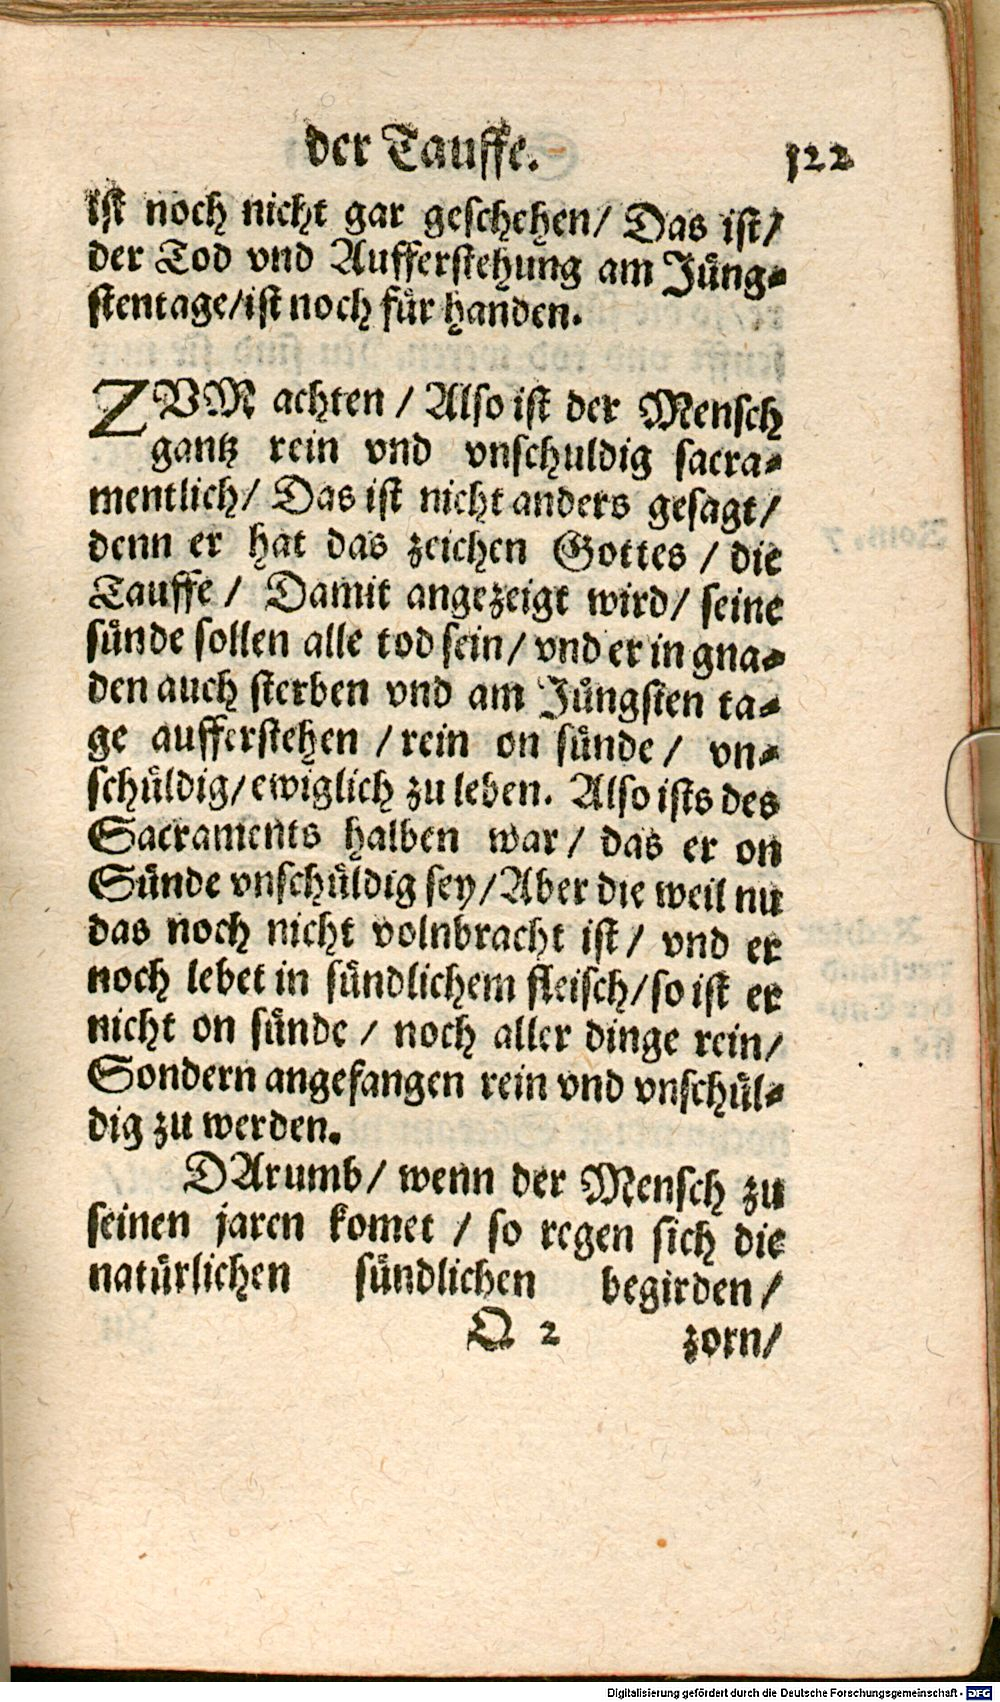 der Tauffe. 122
ist noch nicht gar geschehen/ Das ist/
der Tod vnd Aufferstehung am Jüng-
stentage/ist noch für handen.
ZVM achten / Also ist der Mensch
gantz rein vnd vnschuldig sacra-
mentlich/ Das ist nicht anders gesagt/
denn er hat das zeichen Gottes / die
Tauffe / Damit angezeigt wird/ seine
sünde sollen alle tod sein/ vnd er in gna-
den auch sterben vnd am Jüngsten ta-
ge aufferstehen / rein on sünde / vn-
schüldig/ ewiglich zu leben. Also ists des
Sacraments halben war / das er on
Sünde vnschüldig sey/ Aber die weil nu
das noch nicht volnbracht ist / vnd er
noch lebet in sündlichem fleisch/ so ist er
nicht on sünde / noch aller dinge rein/
Sondern angefangen rein vnd vnschül-
dig zu werden.
DArumb/ wenn der Mensch zu
seinen jaren komet / so regen sich die
natürlichen sündlichen begirden/
Q 2 zorn/
Digitalisierung gefördert durch die Deutsche Forschungsgemeinschaft - DFG